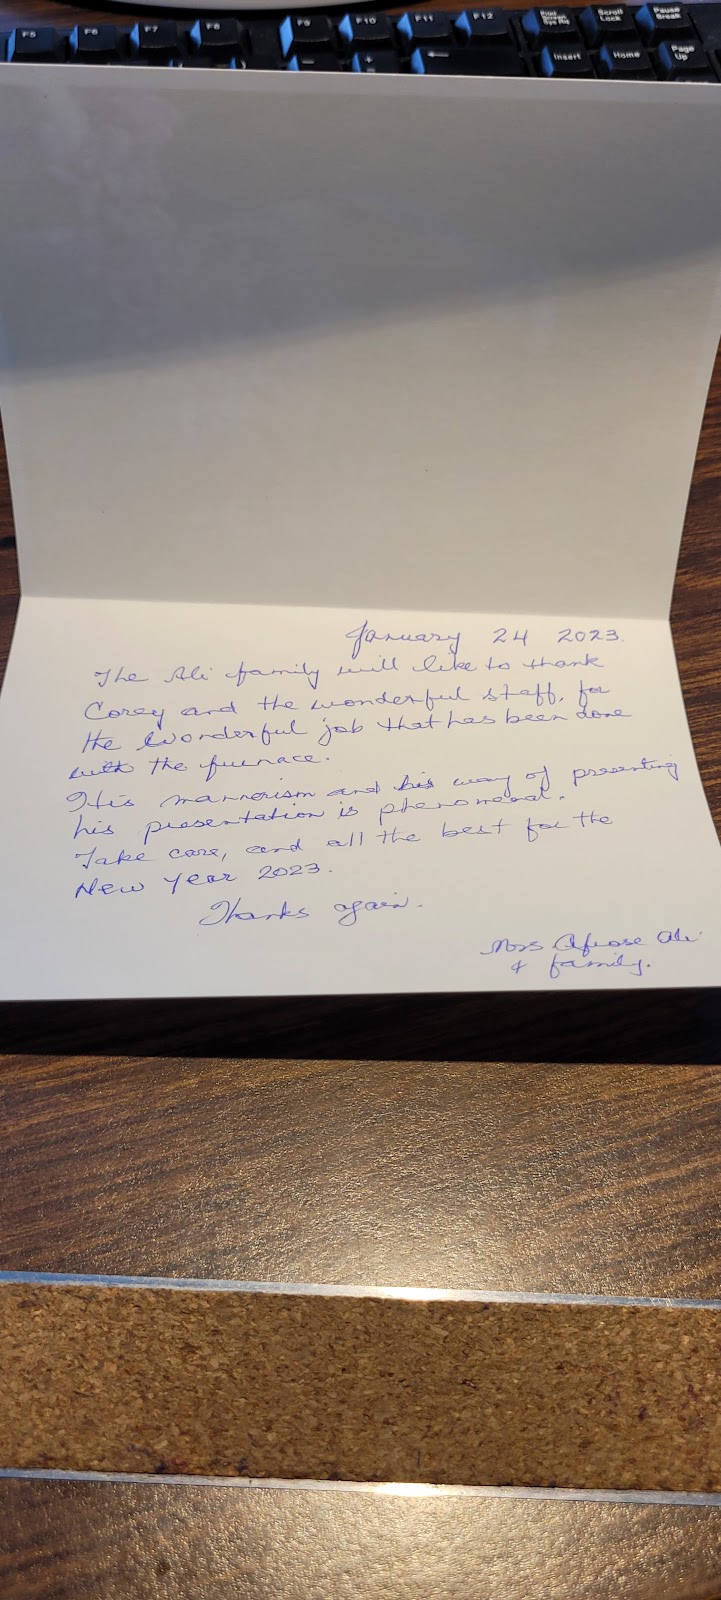 F5 F6 F7 F8 F9 F10 F11 F12 Print Screen Sys Rq Scroll Lock Pause Break
- + = Insert Home Page Up
January 24 2023.
The Ali family will like to thank
Corey and the wonderful staff, for
the wonderful job that has been done
with the furnace.
His mannerism and his way of presenting
his presentation is phenomenal.
Take care, and all the best for the
New Year 2023.
Thanks again.
Mrs Ali
& family.